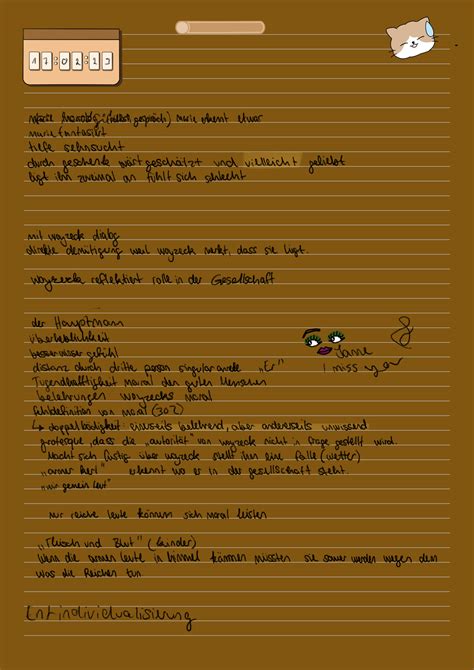 17:02:23
marie monolog (selbstgespräch) marie erkennt etwas
marie fantasiert
tiefe sehnsucht
durch geschenke wertgeschätzt und vielleicht geliebt
lügt ihn zweimal an fühlt sich schlecht
mit woyzeck dialog
direkte demütigung weil woyzeck merkt, dass sie lügt.
woyzeck reflektiert rolle in der Gesellschaft
der Hauptmann
überheblichkeit
besserwisser gefühl
distanz durch dritte person singular anrede „Er"
Tugendhaftigkeit moral den guten Menschen
belehrungen woyzecks moral
fehldefinition von moral (30Z)
→ doppelbödigkeit einerseits belehrend, aber andererseits unwissend
grotesque, dass die „autorität" von woyzeck nicht in frage gestellt wird.
Macht sich lustig über woyzeck stellt ihm eine falle (wetter)
„armer kerl" erkennt wo er in der gesellschaft steht.
„wir gemein leut"
nur reiche leute können sich moral leisten
„Fleisch und Blut" (kinder)
Wenn die armen leute in himmel kommen müssten sie sauer werden wegen dem
was die Reichen tun.
Entindividualisierung
Jame
I miss you